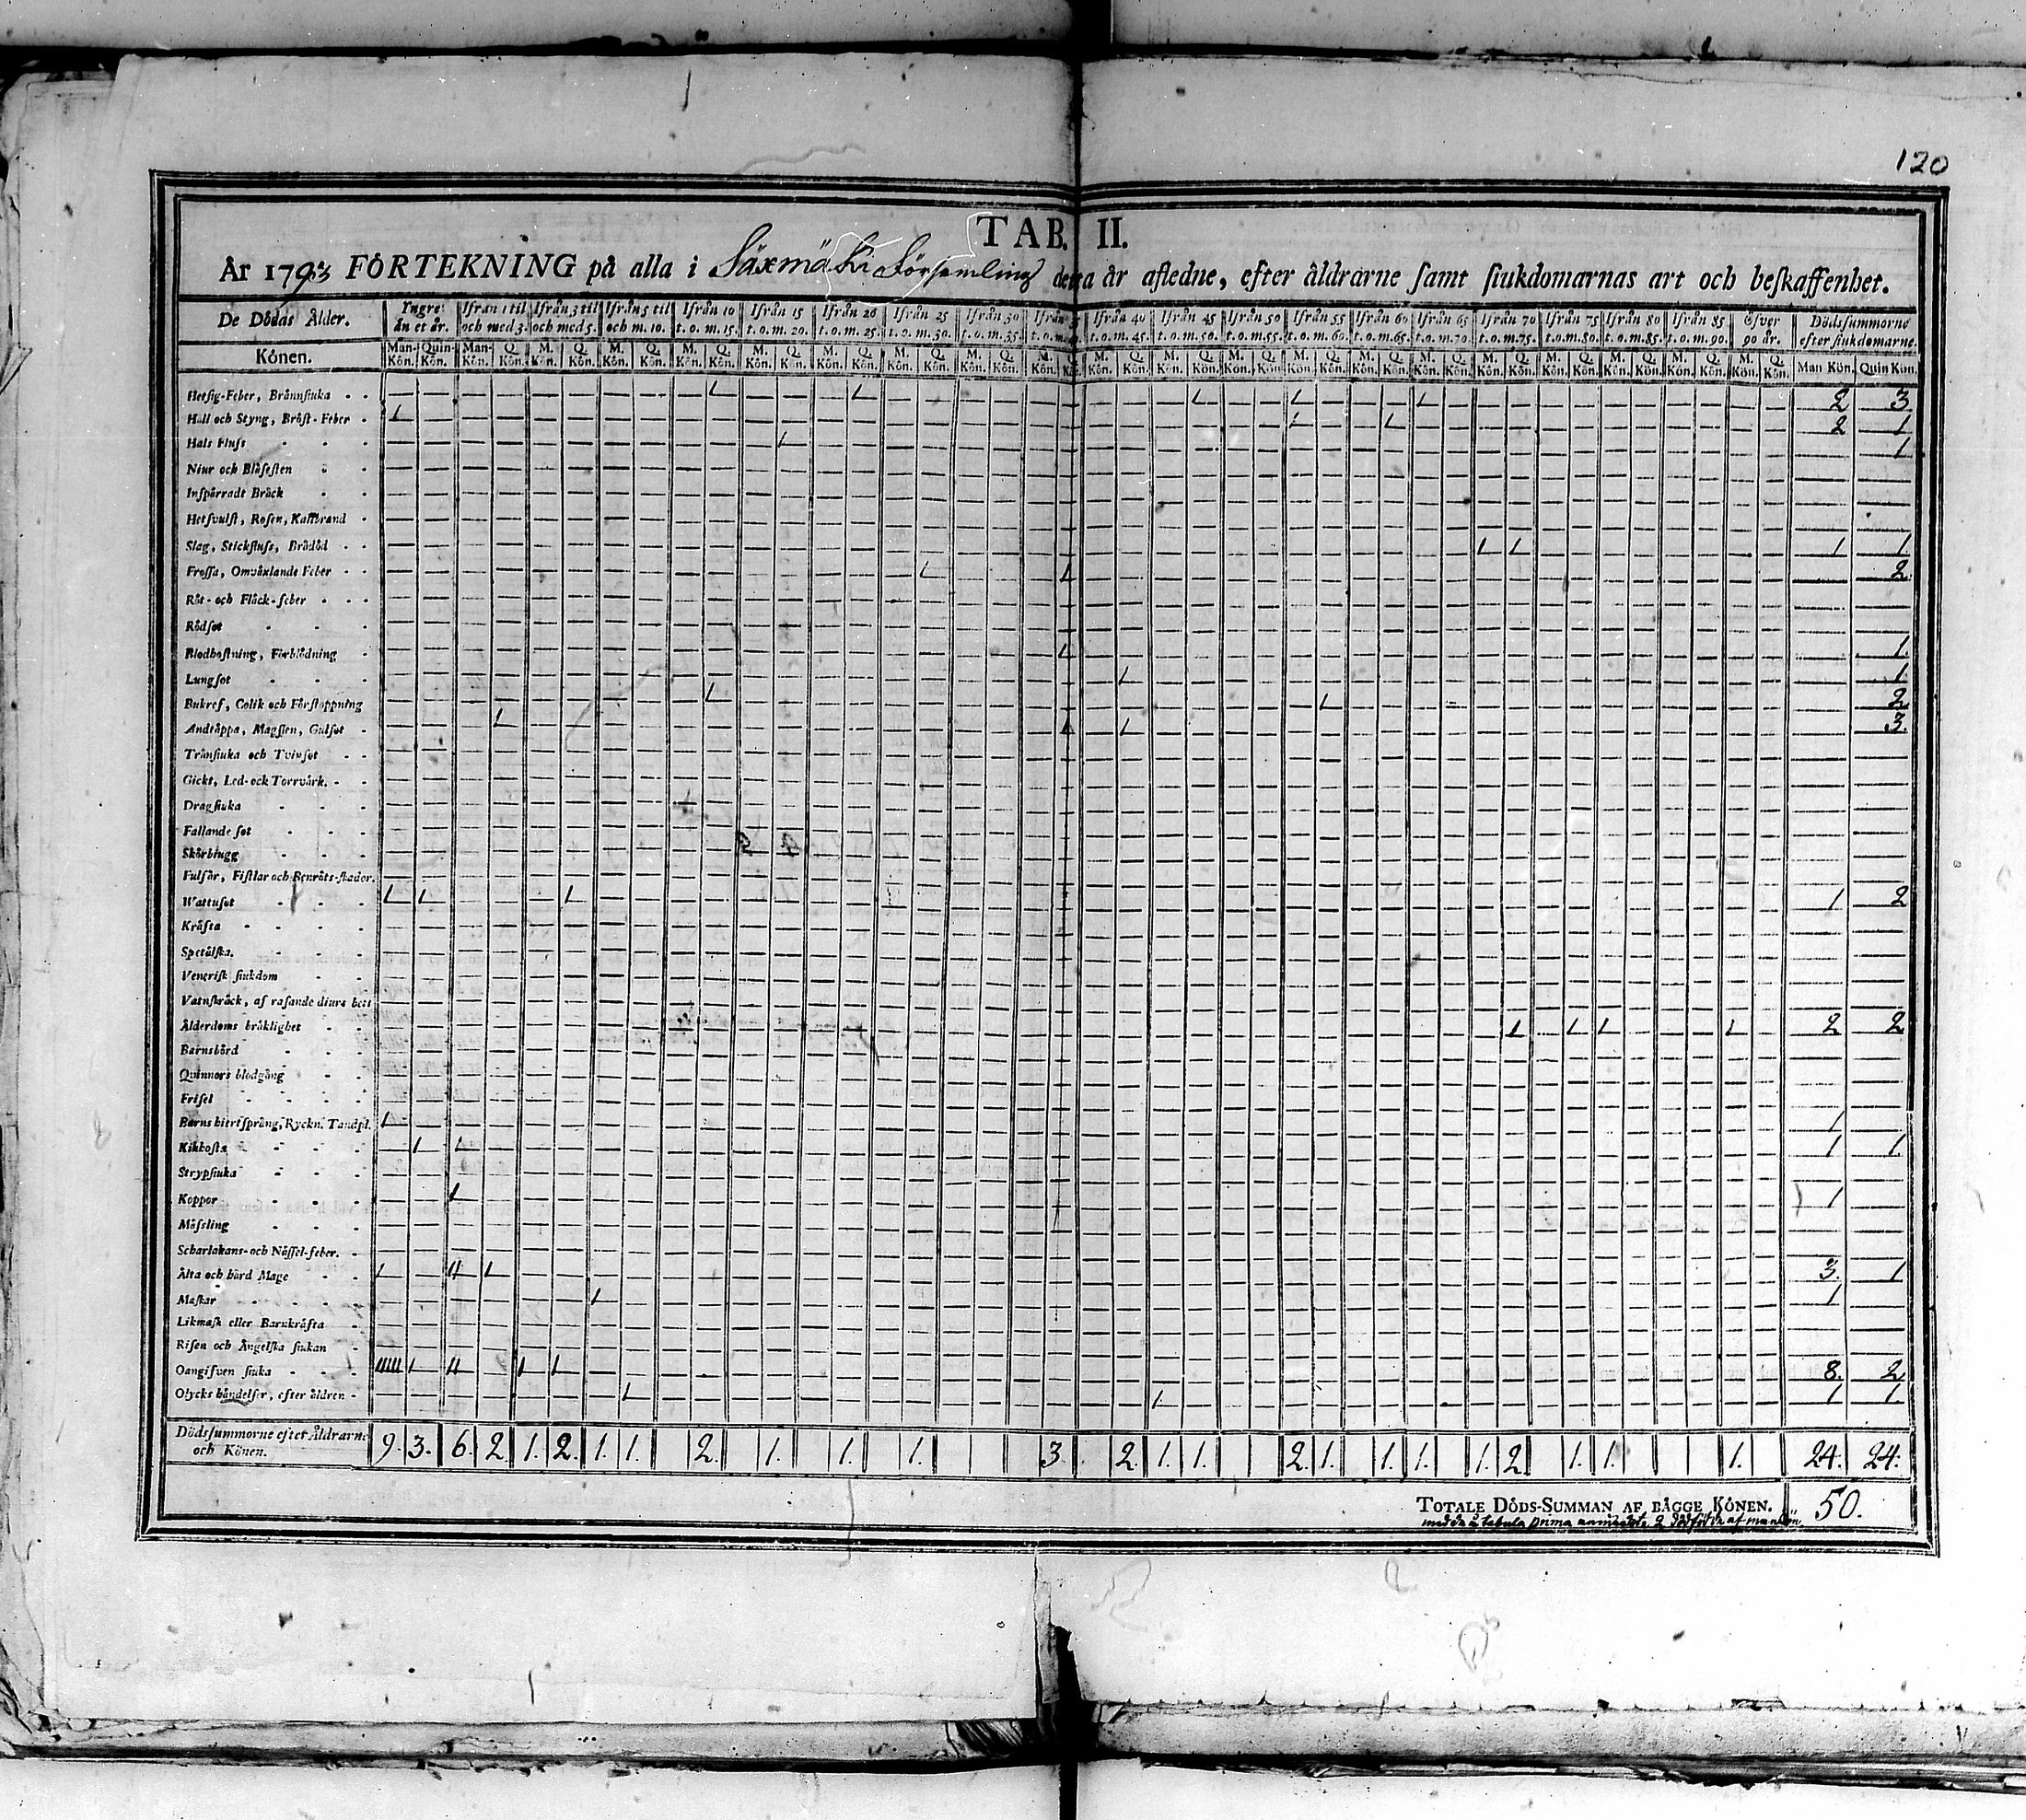 120
TAB. II.
År 1793 FÖRTEKNING på alla i Säxmäki Församling detta år afledne, efter åldrarne samt siukdomarnas art och beskaffenhet.
De Dödas Ålder. Yngre än et år. Ifrån 1 til och med 3. Ifrån 3 til och med 5. Ifrån 5 til och m. 10. Ifrån 10 t.o.m. 15. Ifrån 15 t.o.m. 20. Ifrån 20 t.o.m. 25. Ifrån 25 t.o.m. 30. Ifrån 30 t.o.m. 35. Ifrån t.o.m. Ifrån 40 t.o.m. 45. Ifrån 45 t.o.m. 50. Ifrån 50 t.o.m. 55. Ifrån 55 t.o.m. 60. Ifrån 60 t.o.m. 65. Ifrån 65 t.o.m. 70. Ifrån 70 t.o.m. 75. Ifrån 75 t.o.m. 80. Ifrån 80 t.o.m. 85. Ifrån 85 t.o.m. 90. Öfver 90 år. Dödssummorne efter siukdomarne.
Könen. Man-Kön. Quin-Kön. Man-Kön. Q. Kön. M. Kön. Q. Kön. M. Kön. Q. Kön. M. Kön. Q. Kön. M. Kön. Q. Kön. M. Kön. Q. Kön. M. Kön. Q. Kön. M. Kön. Q. Kön. M. Kön. Kön. M. Kön. Q. Kön. M. Kön. Q. Kön. M. Kön. Q. Kön. M. Kön. Q. Kön. M. Kön. Q. Kön. M. Kön. Q. Kön. M. Kön. Q. Kön. M. Kön. Q. Kön. M. Kön. Q. Kön. M. Kön. Q. Kön. M. Kön. Q. Kön. Man Kön. Quin Kön.
Hetsig-Feber, Brännsiuka 1 1 1 1 1 2 3
Håll och Styng, Bröst-Feber 1 1 1 2 1
Hals Fluss 1 1
Niur och Blåsesten
Inspärradt Bråck
Hetsvulst, Rosen, Kallbrand
Slag, Stickfluss, Brådöd 1 1 1 1
Frossa, Omväxlande Feber 1 1 2
Röt- och Fläck-feber
Rödsot
Blodhostning, Förblödning 1 1
Lungsot 1 1
Bukref, Colik och Förstoppning 1 1 2
Andtäppa, Magsten, Gulsot 1 1 1 3
Trånsiuka och Tvinsot
Gickt, Led- ock Torrvärk.
Dragsiuka
Fallande sot
Skörbiugg
Fulsår, Fistlar och Benröts-skador.
Wattusot 1 1 1 1 2
Kräfta
Spetälska.
Venerisk siukdom
Vatnskräck, af rasande diurs bett
Ålderdoms bräklighet 1 1 1 1 2 2
Barnsbörd
Quinnors blodgång
Frisel
Barns hiertsprång, Ryckn. Tandpl. 1 1
Kikhosta 1 1 1 1
Strypsiuka
Koppor 1 1
Mässling
Scharlakans- och Nässel-feber.
Älta och hård Mage 1 11 1 3 1
Maskar 1 1
Likmask eller Barnkräfta
Risen och Ängelska siukan
Oangifven siuka 11111 1 11 1 1 8. 2
Olycks händelser, efter åldren 1 1 1 1
Dödssummorne efter Åldrarne och Könen. 9. 3. 6. 2 1. 2. 1. 1. 2. 1. 1. 1. 3 2 1. 1. 2. 1. 1. 1. 1. 2. 1. 1. 1. 24. 24.
TOTALE DÖDS-SUMMAN AF BÅGGE KÖNEN. 50.
med de å tabula prima anmärkte 2 dödfödde af mankön.